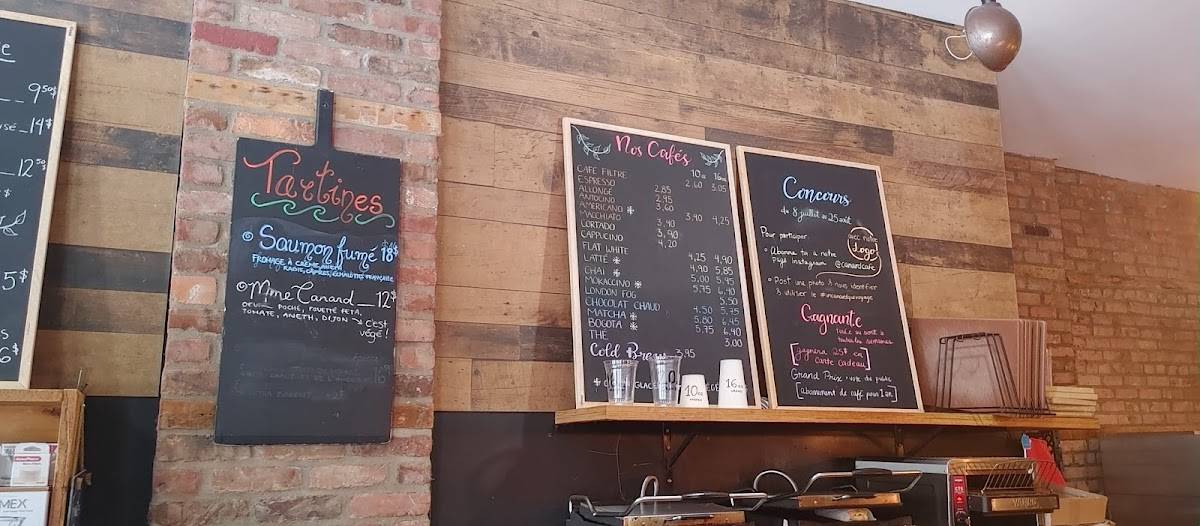 e
9.50$
14$
12.50$
5$
6$
Tartines
Saumon fumé 18$
FROMAGE À CRÈME,
RADIS, CÂPRES, ÉCHALOTTES FRANÇAISE
Mme Canard 12$
POCHÉ, FOUETTÉ FETA,
TOMATE, ANETH, DIJON → c'est
végé!
Nos Cafés
10oz 16oz
CAFÉ FILTRE 2.60 3.05
ESPRESSO
ALLONGÉ 2,85
ANTOCINO 2,95
AMERICANO 3,60
MACCHIATO 3,40 4,25
CORTADO 3,40
CAPPUCINO 3,90
FLAT WHITE 4,20
LATTÉ 4,25 4,90
CHAI 4,90 5.85
MOKACCINO 5.00 5.95
LONDON FOG 5.75 6.40
CHOCOLAT CHAUD 5.50
MATCHA 4.50 5.75
BOGOTA 5.80 6.45
THÉ 5.75 6.40
3.00
Cold Brew 3.95
GLACÉ
10oz
16oz
Concours
du 8 juillet au 25 août
Pour participer:
avec notre
Logo
Abonne toi à notre
page Instagram @canardcafe
Post une photo & nous identifier
& utiliser le
Gagnante
toutes les semaines
gagnera 25$ en
carte cadeau
Grand Prix - vote du public
[abonnement de café pour 1 an]
MEX